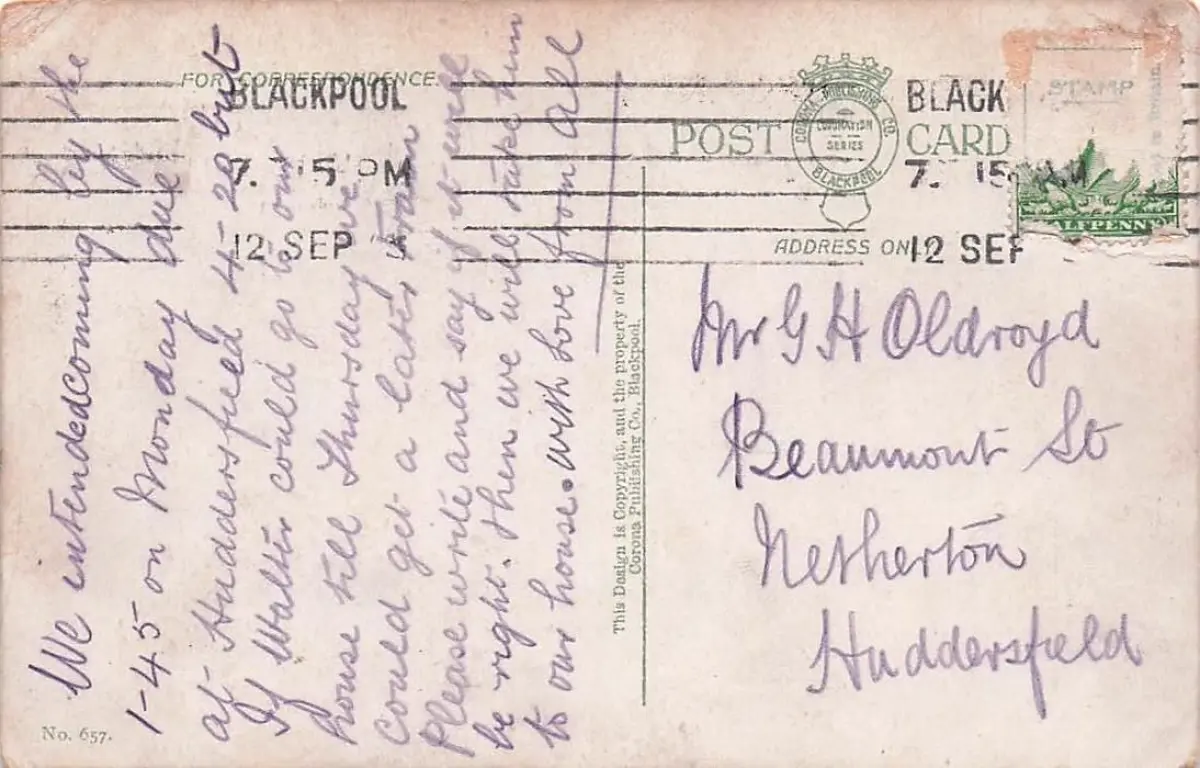 FOR CORRESPONDENCE.
BLACKPOOL
7. 15 PM
12 SEP
POST CARD
CORONA PUBLISHING CO. BLACKPOOL
CORONATION
SERIES
BLACK
7. 15 PM
12 SEP
STAMP
ALFPENN
ADDRESS ON
We intended coming by the
1-45 on Monday due
at Huddersfield 4-20 but
If Walter could go to our
house till Thursday we
could get a later train
Please write and say if it will
be right. then we will take him
to our house. with love from all
This Design is Copyright, and the property of the
Corona Publishing Co., Blackpool.
Mr G H Oldroyd
Beaumont St
Netherton
Huddersfield
No. 657.